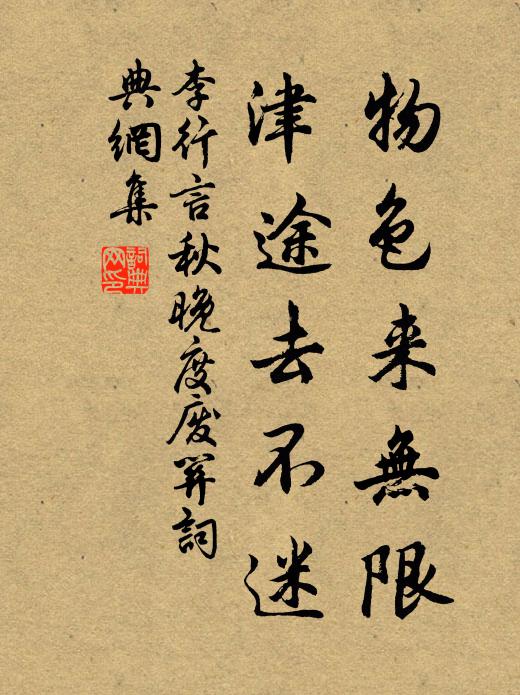 物色来無限
津途去不迷
李行言秋晚度废关詞
典網集
詞典网印